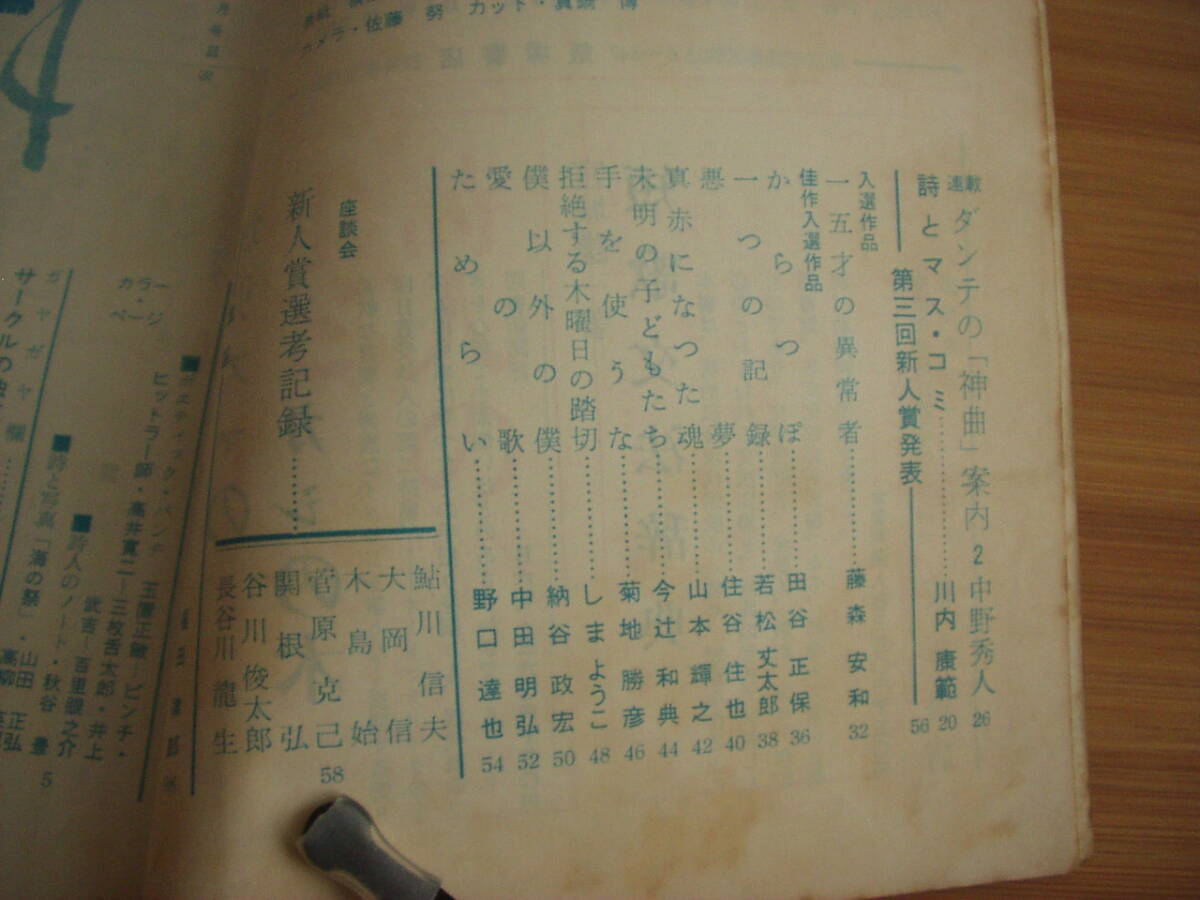 カメラ・佐藤 努 カット・真鍋 博
連載 ダンテの「神曲」案内 2 中野秀人 26
詩とマス・コミ………川内 康範 20
第三回新人賞発表 56
入選作品
一五才の異常者………藤森 安和 32
佳作入選作品
からっぽ………田谷 正保 36
一つの記録………若松 丈太郎 38
悪夢………住谷 住也 40
真赤になつた魂………山本 輝之 42
未明の子どもたち………今辻 和典 44
手を使うな………菊地 勝彦 46
拒絶する木曜日の踏切………しま ようこ 48
僕以外の僕………納谷 政宏 50
愛の歌………中田 明弘 52
ためらい………野口 達也 54
座談会
新人賞選考記録………
鮎川信夫
大岡信
木島始
菅原克己 58
関根弘
谷川俊太郎
長谷川龍生
カラー・ページ
■ポエティスク・パンチ
ヒットラー
■詩人のノート・秋谷 豊 5
■詩と写真「海の祭」・山田
ガヤガヤ欄
サークルの